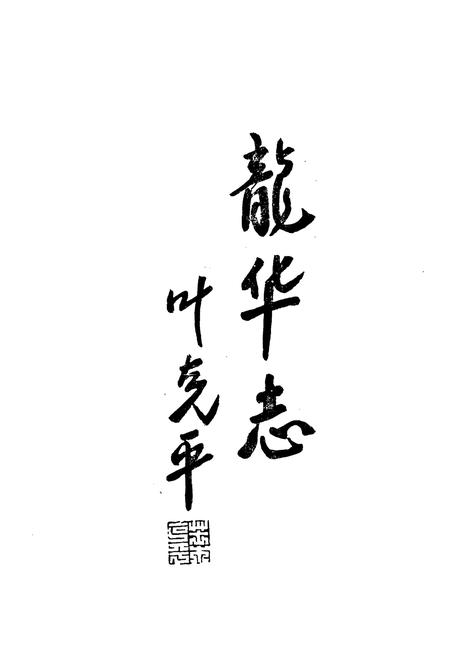 龍华志
叶克平